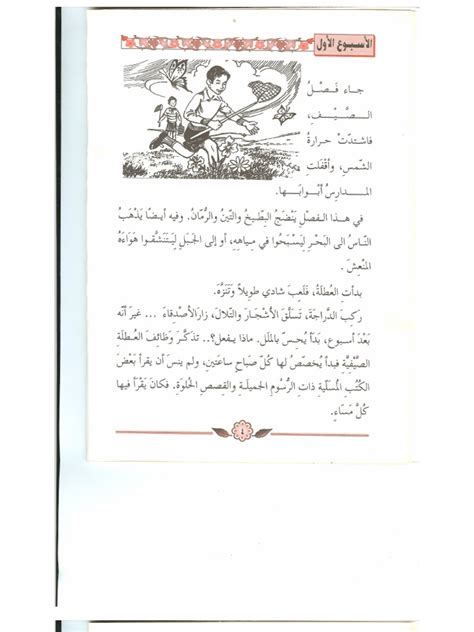 الأسبوع الأول
جاء فَصْلُ
الصَّيْفِ،
فاشتدّتْ حرارةُ
الشّمسِ، وأقْفَلت
المدارسُ أبْوابَها.
في هذا الفصلِ يَنْضَجُ البِطّيخُ والتّينُ والرُّمّانُ. وفيه أيضاً يَذْهَبُ
النّاسُ الى البَحْرِ لِيَسْبَحُوا في مِياهِهِ، أو إلى الجَبَلِ لِيَتَنَشَّقُوا هَوَاءَهُ
المنْعِشَ.
بدأتِ العُطلَةُ، فَلَعِبَ شادي طويلاً وَتَنَزَّهَ.
ركِبَ الدرّاجَةَ، تَسَلَّقَ الأشْجَارَ والتّلالَ، زارَ الأصدقاءَ ... غيرَ أنّه
بَعْدَ أسبوعٍ، بَدَأَ يُحِسّ بالملَلِ. ماذا يفعل؟.. تذكّرَ وظائِفَ العُطلَةِ
الصّيْفيَّةِ فبدأ يُخصّصُ لها كُلَّ صباحٍ ساعَتينِ، ولم ينسَ أن يقرأ بَعْضَ
الكُتُبِ المُسَلّيةِ ذاتِ الرُّسُومِ الجميلَةِ والقصصِ الحُلوَةِ. فكانَ يَقْرَأُ فيها
كُلَّ مَسَاءٍ.
٤